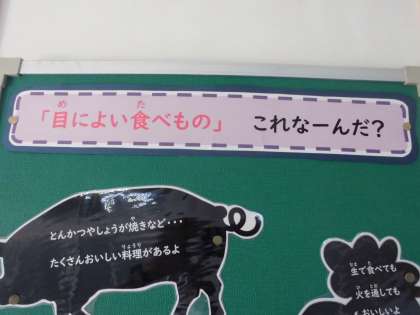 「目によい食べもの」 これなーんだ？
とんかつやしょうが焼きなど・・・
たくさんおいしい料理があるよ
生で食べても
火を通しても
おいしいよ